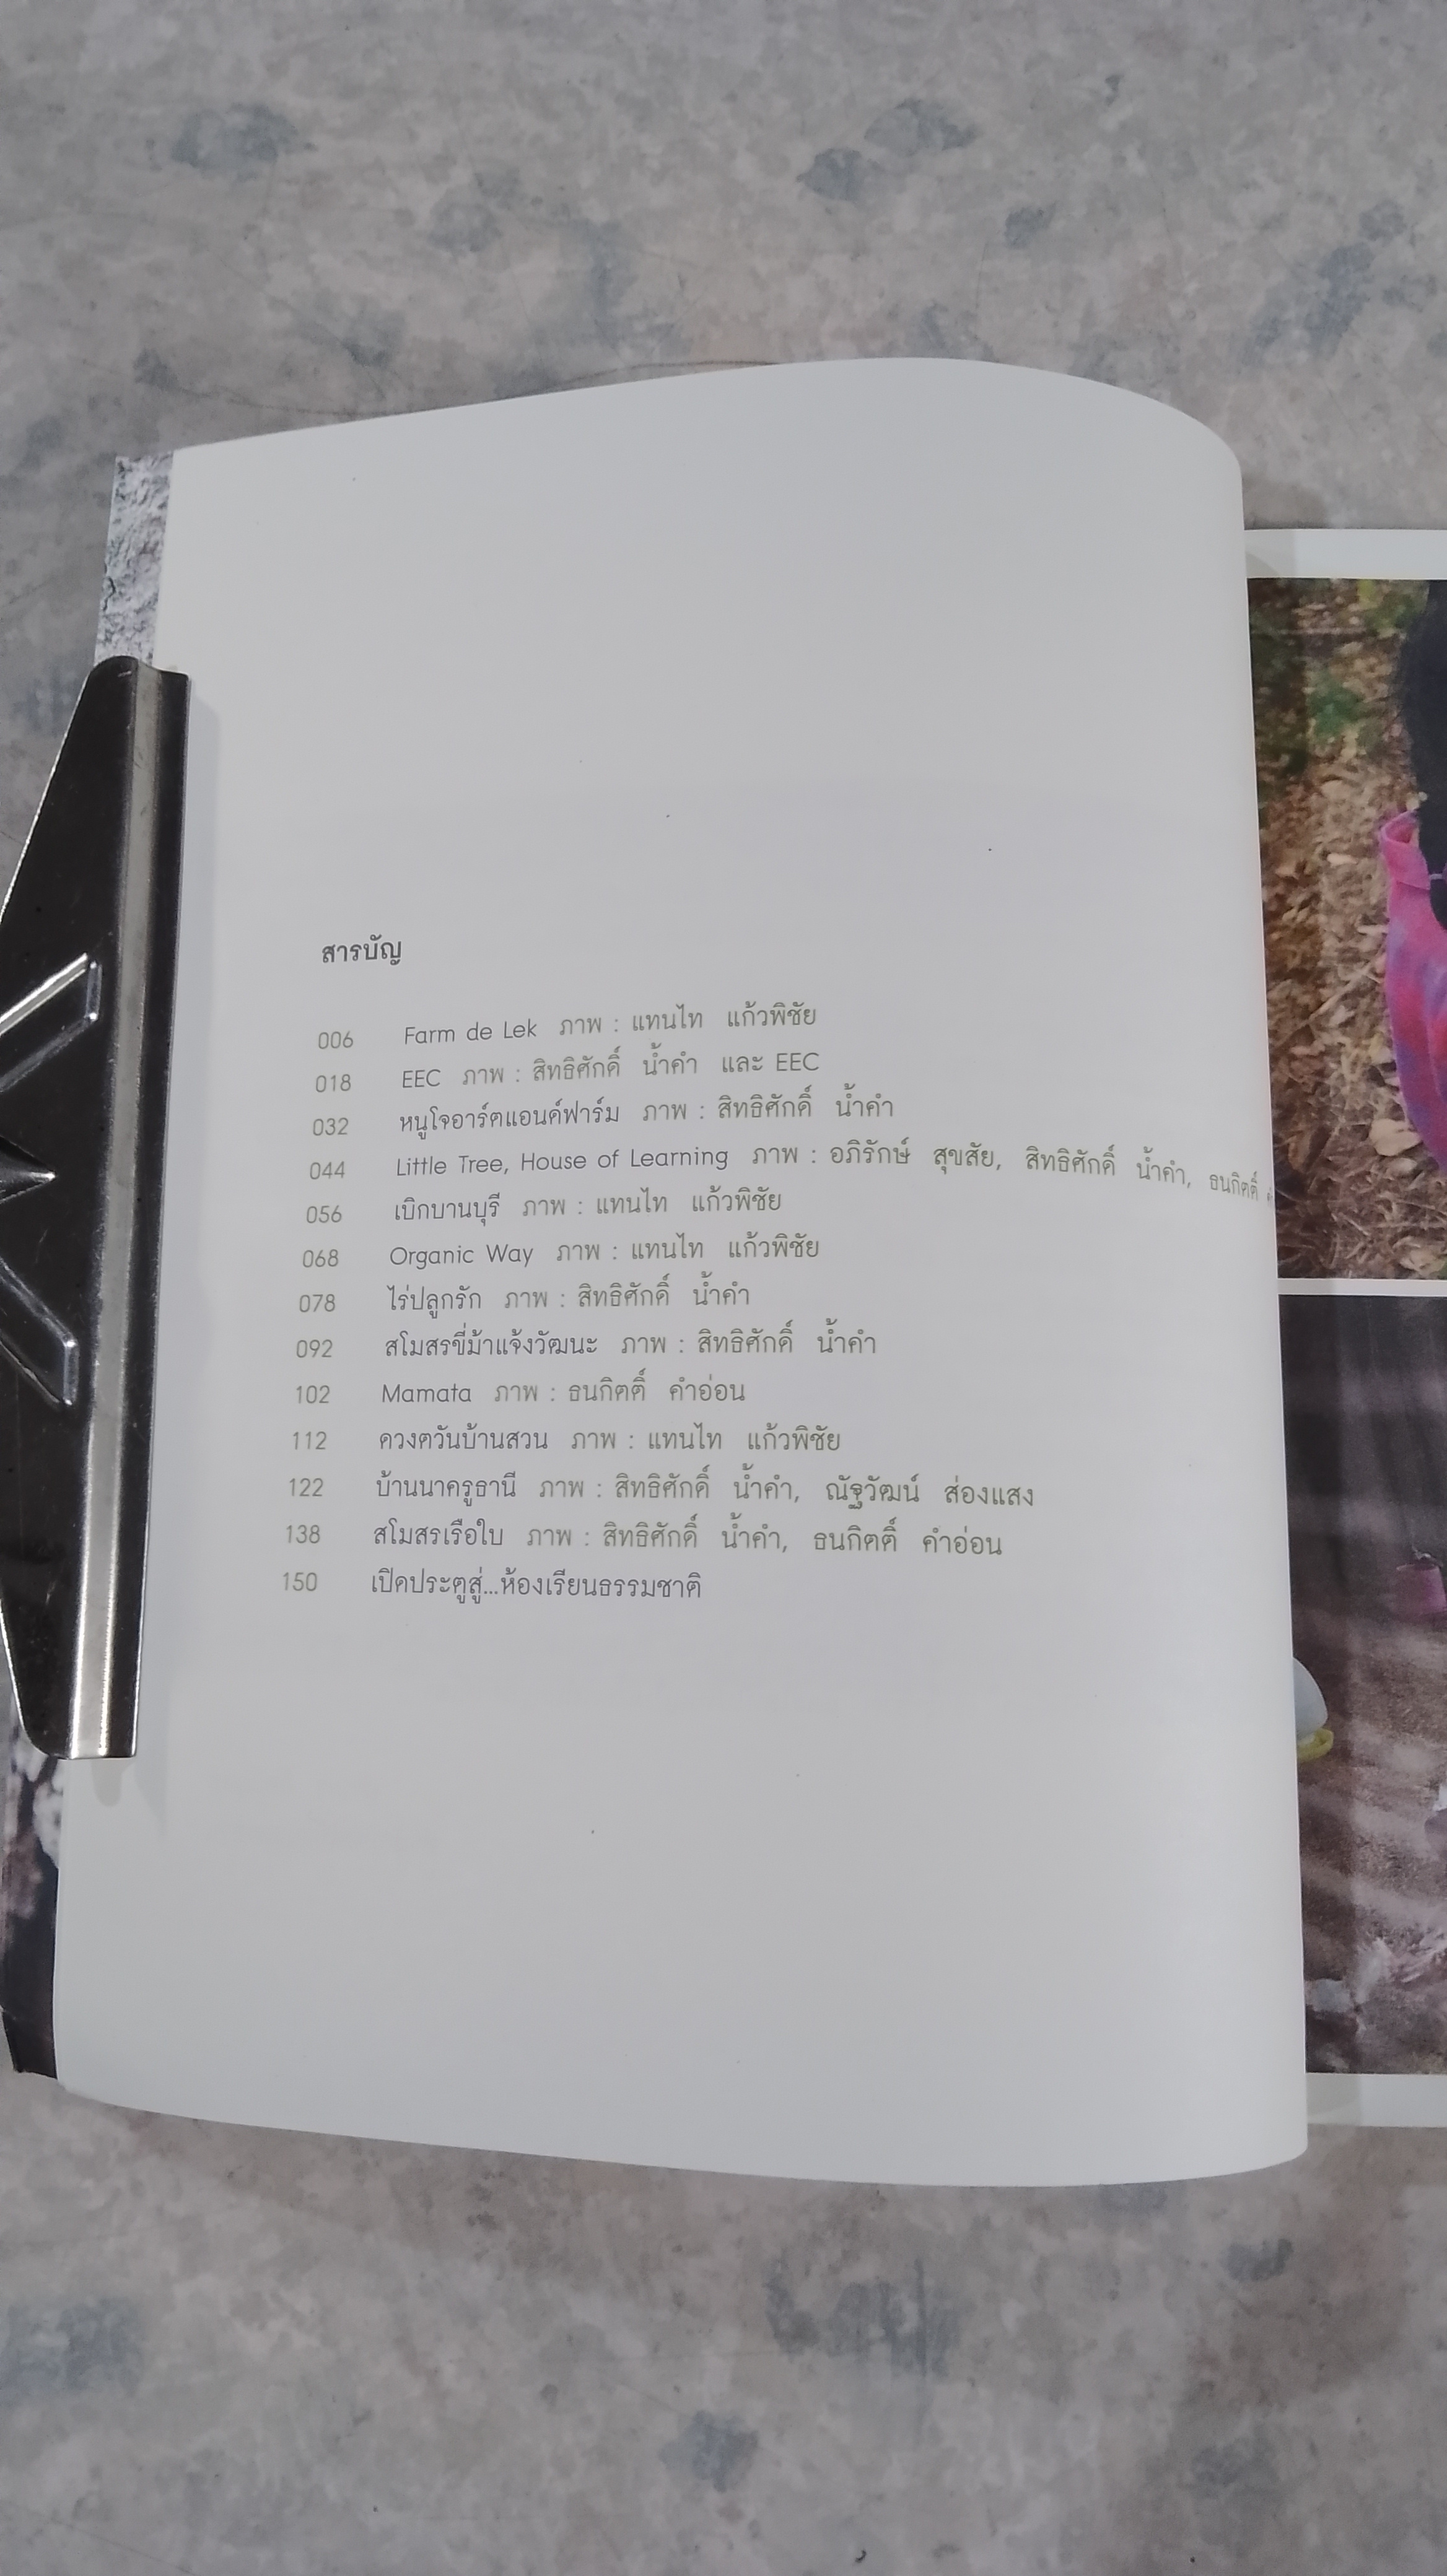 สารบัญ
006 Farm de Lek ภาพ : แทนไท แก้วพิชัย
018 EEC ภาพ : สิทธิศักดิ์ น้ำคำ และ EEC
032 หนูโจอาร์ตแอนด์ฟาร์ม ภาพ : สิทธิศักดิ์ น้ำคำ
044 Little Tree, House of Learning ภาพ : อภิรักษ์ สุขสัย, สิทธิศักดิ์ น้ำคำ, ธนกิตติ์
056 เบิกบานบุรี ภาพ : แทนไท แก้วพิชัย
068 Organic Way ภาพ : แทนไท แก้วพิชัย
078 ไร่ปลูกรัก ภาพ : สิทธิศักดิ์ น้ำคำ
092 สโมสรขี่ม้าแจ้งวัฒนะ ภาพ : สิทธิศักดิ์ น้ำคำ
102 Mamata ภาพ : ธนกิตติ์ คำอ่อน
112 ดวงตวันบ้านสวน ภาพ : แทนไท แก้วพิชัย
122 บ้านนาครูธานี ภาพ : สิทธิศักดิ์ น้ำคำ, ณัฐวัฒน์ ส่องแสง
138 สโมสรเรือใบ ภาพ : สิทธิศักดิ์ น้ำคำ, ธนกิตติ์ คำอ่อน
150 เปิดประตูสู่...ห้องเรียนธรรมชาติ